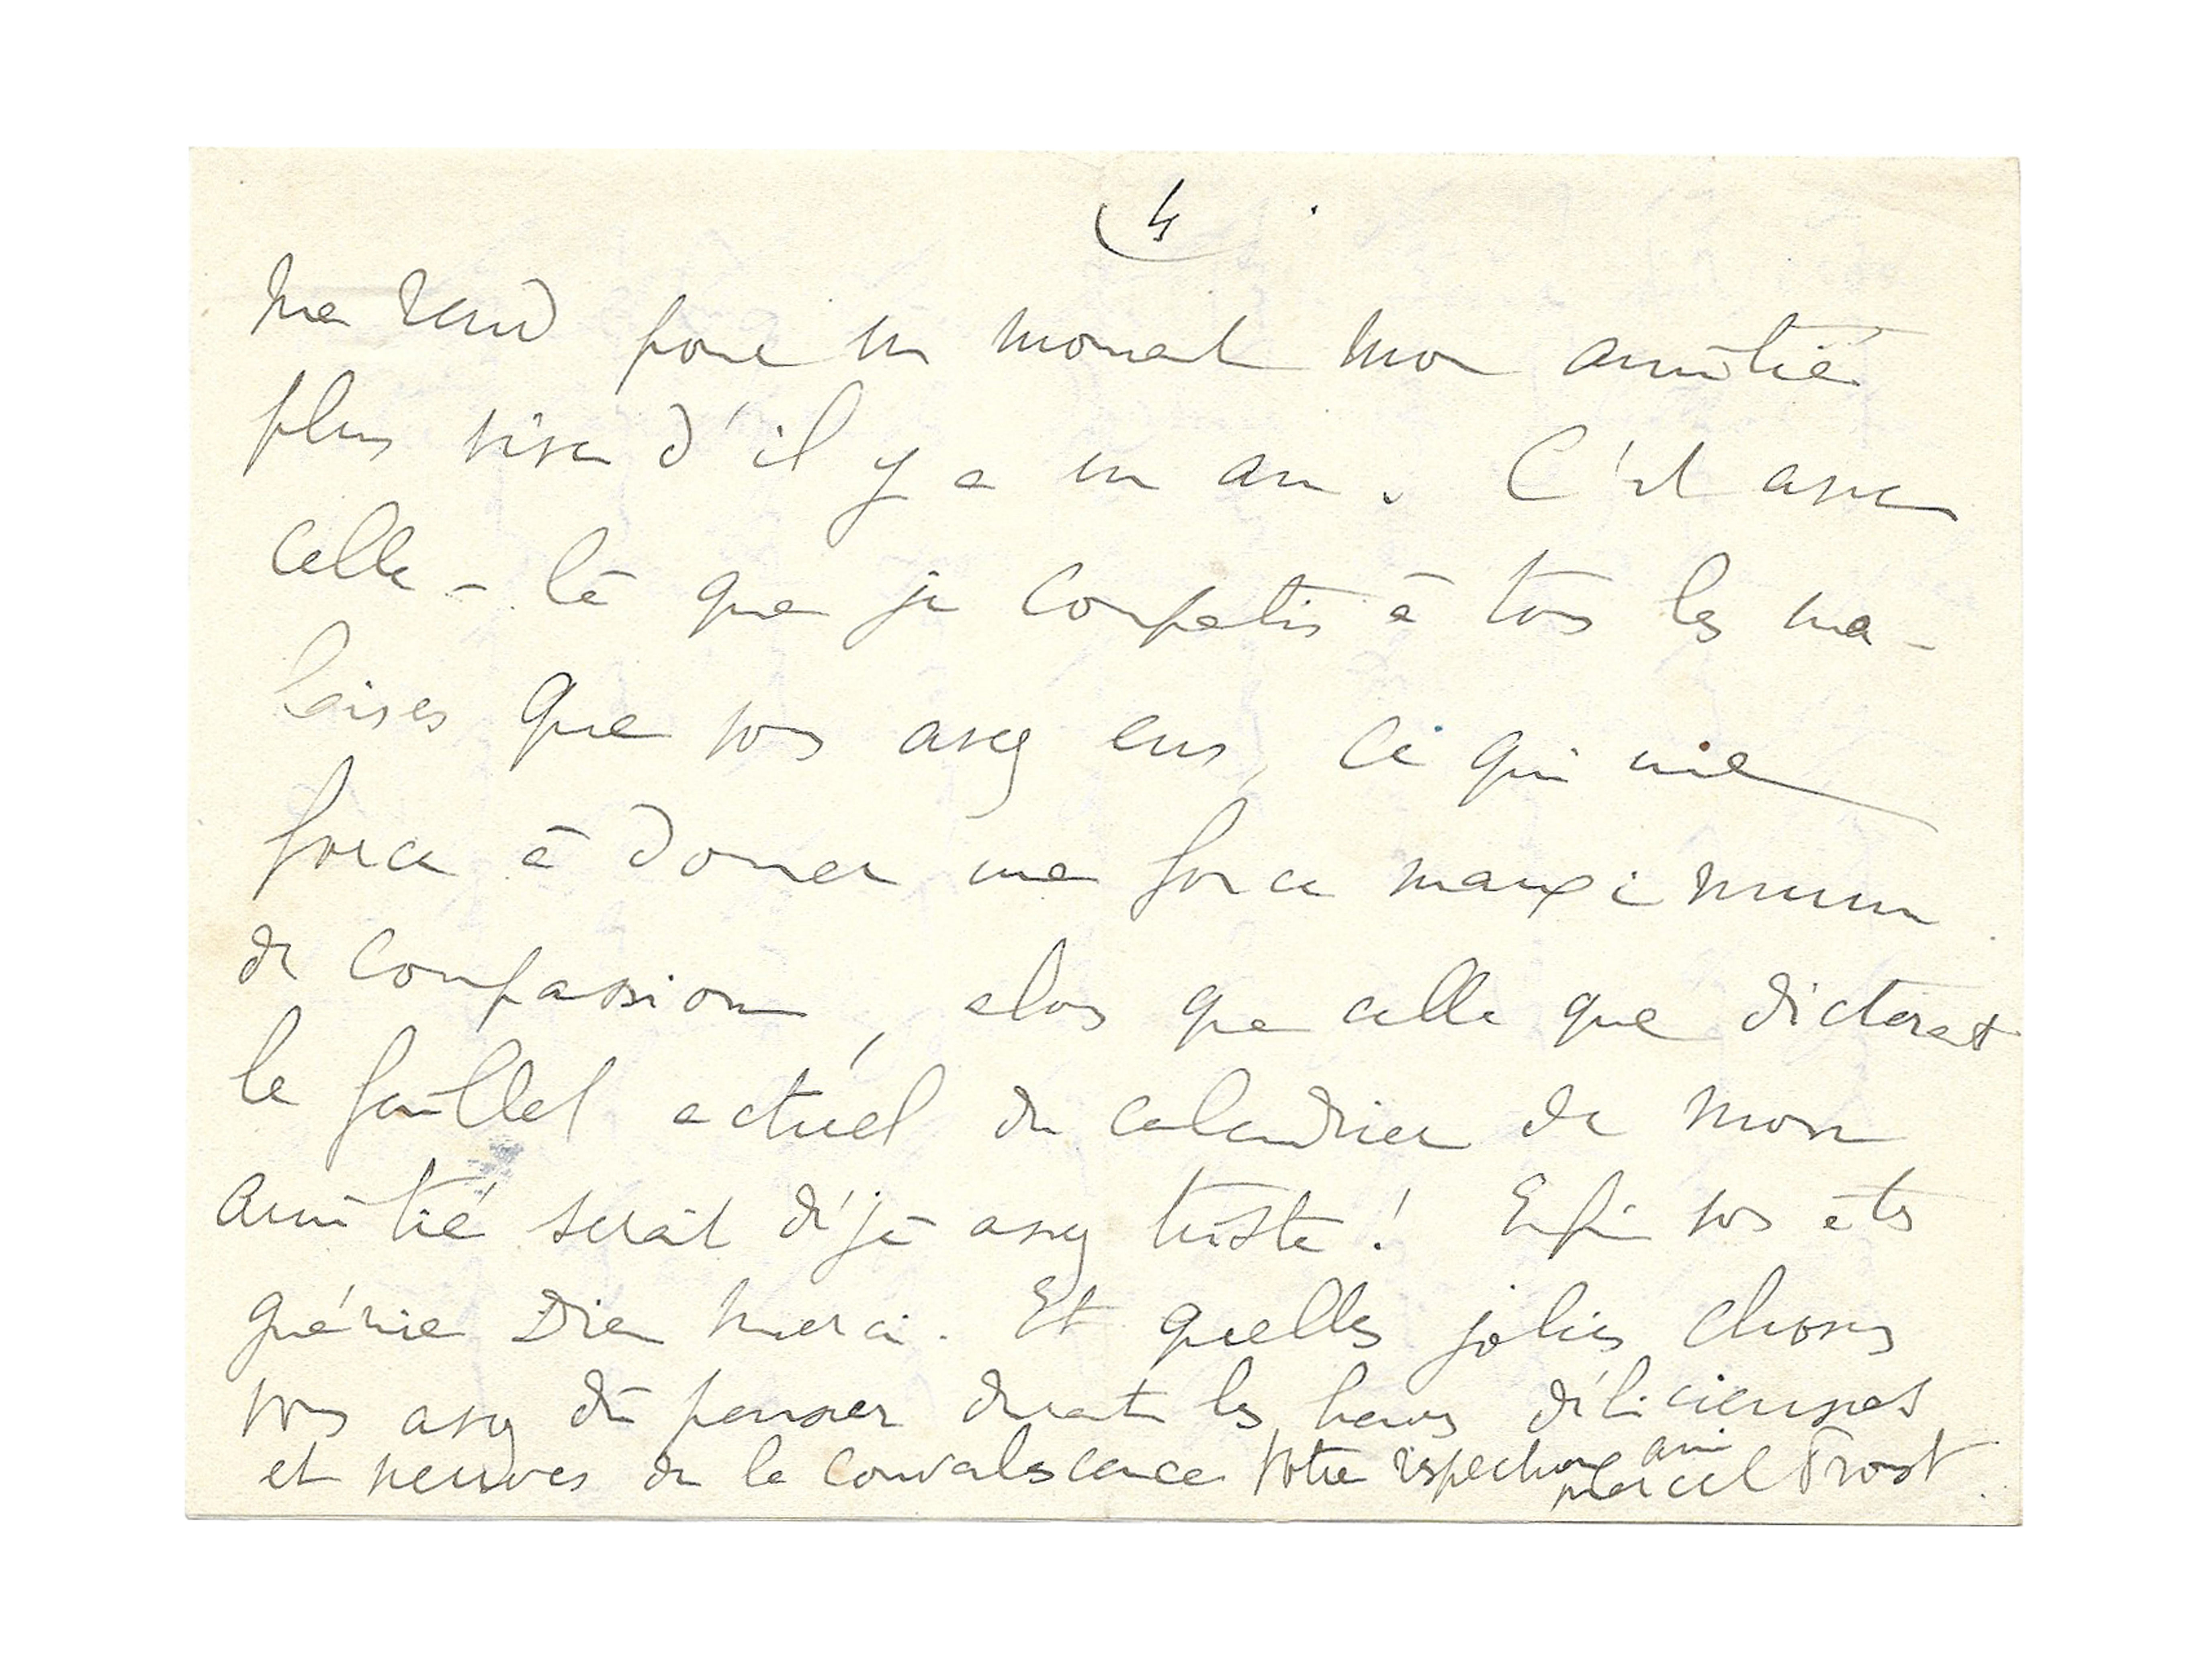 4
me rend pour un moment mon amitié
plus vive d'il y a un an. C'est avec
celle-là que je compatis à tous les ma-
laises que vous avez eus, ce qui me
force à donner une force maximum
de compassion, alors que celle que dicterait
le feuillet actuel du calendrier de mon
amitié serait déjà assez triste! Enfin vous êtes
guérie Dieu merci. Et quelles jolies choses
vous avez dû penser durant les heures délicieuses
et neuves de la convalescence Votre respectueux ami
Marcel Proust